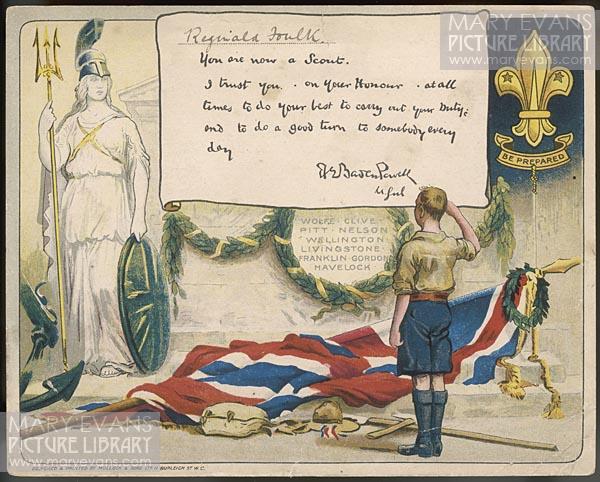 MARY EVANS
PICTURE LIBRARY
www.maryevans.com
Reginald Foulk.
You are now a Scout.
I trust you . on your Honour . at all
times to do your best to carry out your Duty;
and to do a good turn to somebody every
day
BE PREPARED
WOLFE · CLIVE ·
PITT · NELSON
WELLINGTON
LIVINGSTONE
FRANKLIN · GORDON
HAVELOCK
MARY EVANS
PICTURE LIBRARY
www.maryevans.com
MARY EVANS
PICTURE LIBRARY
www.maryevans.com
BURLEIGH ST W.C.